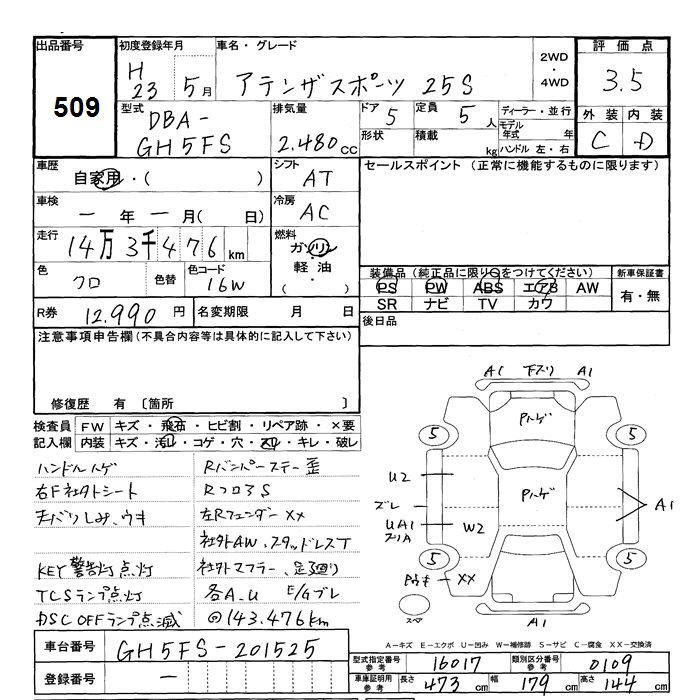 出品番号 509
初度登録年月 H23 5月
車名・グレード アテンザスポーツ 25S
2WD・4WD
評価点 3.5
型式 DBA-GH5FS
排気量 2.480cc
ドア 5
定員 5人
形状
積載 kg
ディーラー・並行
モデル年式 年
ハンドル 左・右
外装 C
内装 D
車歴 自家用・( )
シフト AT
車検 ー年ー月( 日)
冷房 AC
走行 14万3千476km
燃料 ガソリン・軽油・( )
色 クロ
色替
色コード 16W
R券 12.990円
名変期限 月 日
セールスポイント (正常に機能するものに限ります)
装備品(純正品に限り○をつけてください)
PS PW ABS エアB AW
SR ナビ TV カワ
新車保証書 有・無
後日品
注意事項申告欄(不具合内容等は具体的に記入して下さい)
修復歴 有 〔箇所 〕
検査員記入欄
FW キズ・飛石・ヒビ割・リペア跡・×要
内装 キズ・汚れ・コゲ・穴・スリ・キレ・破レ
ハンドルハゲ
右F社外シート
天バリしみ、ウキ
KEY警告灯点灯
TCSランプ点灯
DSC OFFランプ点滅
Rバンパーステー歪
RフロアS
左Rフェンダー××
社外AW、スタッドレスT
社外マフラー、足廻り
各A.U E/Gブレ
◎143.476km
A1 下スリ A1
Pハゲ
5 5
U2
ズレ
UA1
W2
Pハゲ
A1
5 5
××
スペア
A1
A-キズ E-エクボ U-凹み W-補修跡 S-サビ C-腐食 XX-交換済
車台番号 GH5FS-201525
登録番号 ー
型式指定番号 参考 16017
類別区分番号 参考 0109
車庫証明用 参考 長さ 473cm 幅 179cm 高さ 144cm